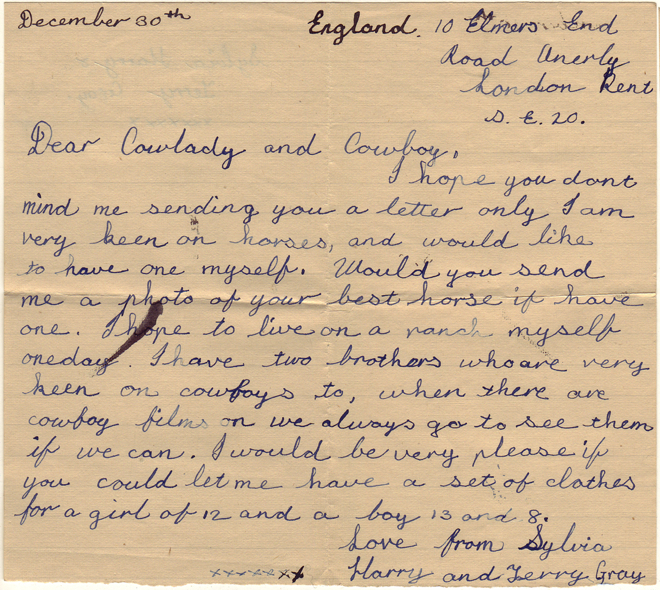 December 30th England. 10 Elmers End
Road Anerly
London Kent
S. E. 20.
Dear Cowlady and Cowboy,
I hope you dont
mind me sending you a letter only I am
very keen on horses, and would like
to have one myself. Would you send
me a photo of your best horse if have
one. I hope to live on a ranch myself
oneday. I have two brothers who are very
keen on cowboys to, when there are
cowboy films on we always go to see them
if we can. I would be very please if
you could let me have a set of clothes
for a girl of 12 and a boy 13 and 8.
Love from Sylvia
xxxxxxx Harry and Terry Gray